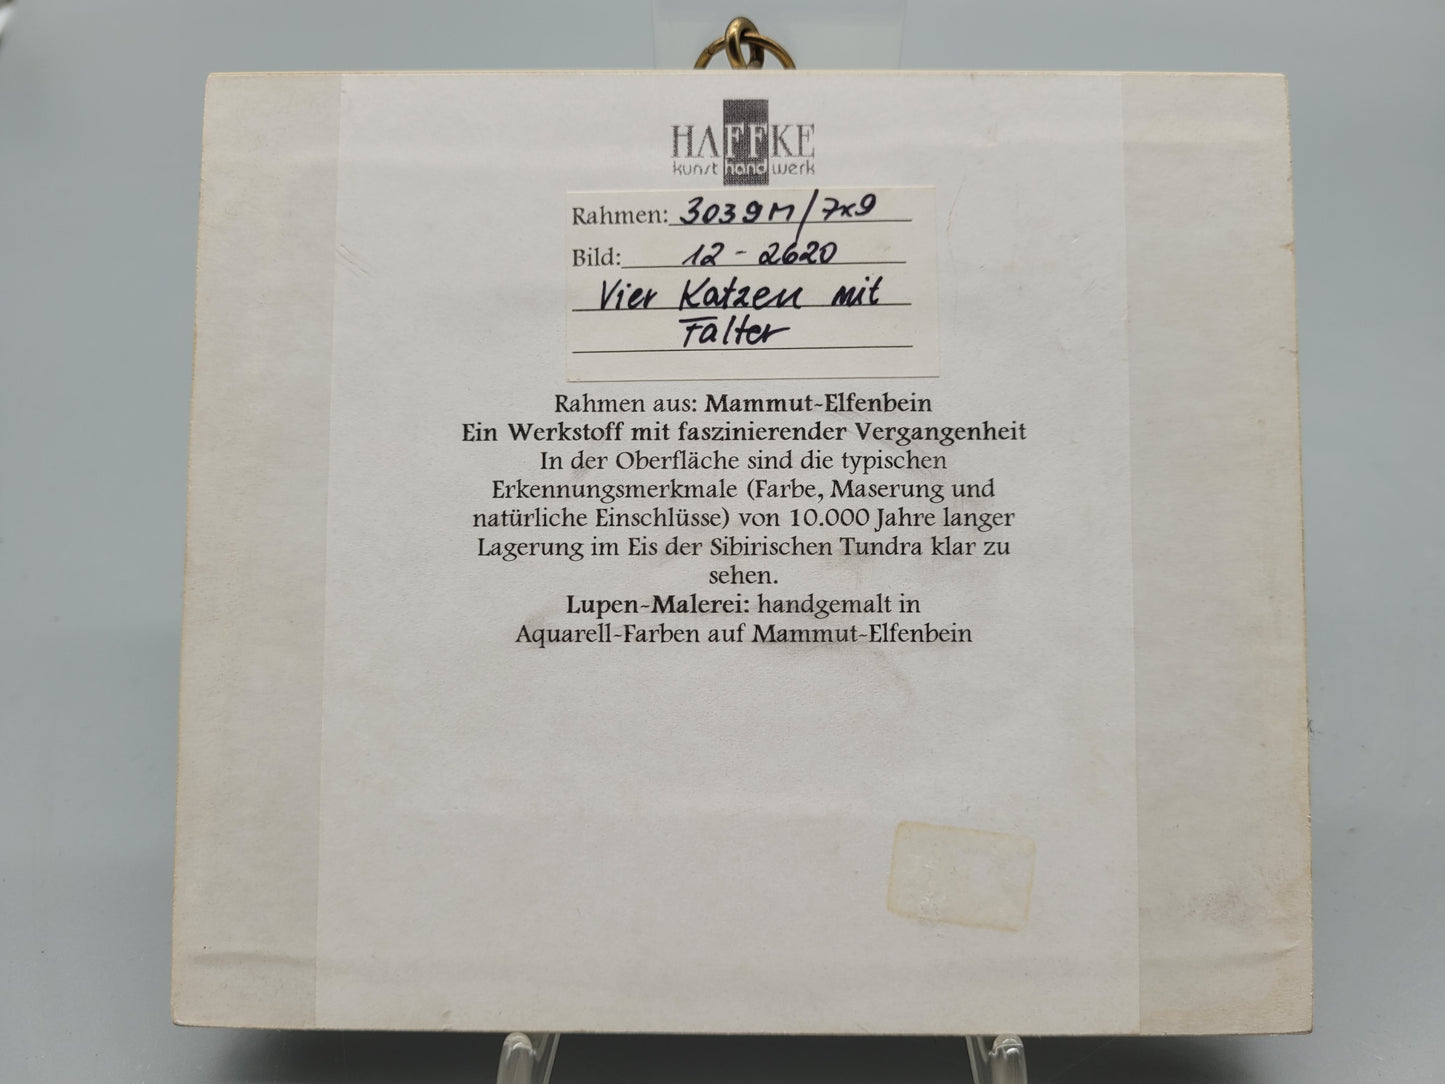 HAFFKE
kunst hand werk
Rahmen: 3039M/7x9
Bild: 12-2620
Vier Katzen mit
Falter
Rahmen aus: Mammut-Elfenbein
Ein Werkstoff mit faszinierender Vergangenheit
In der Oberfläche sind die typischen
Erkennungsmerkmale (Farbe, Maserung und
natürliche Einschlüsse) von 10.000 Jahre langer
Lagerung im Eis der Sibirischen Tundra klar zu
sehen.
Lupen-Malerei: handgemalt in
Aquarell-Farben auf Mammut-Elfenbein